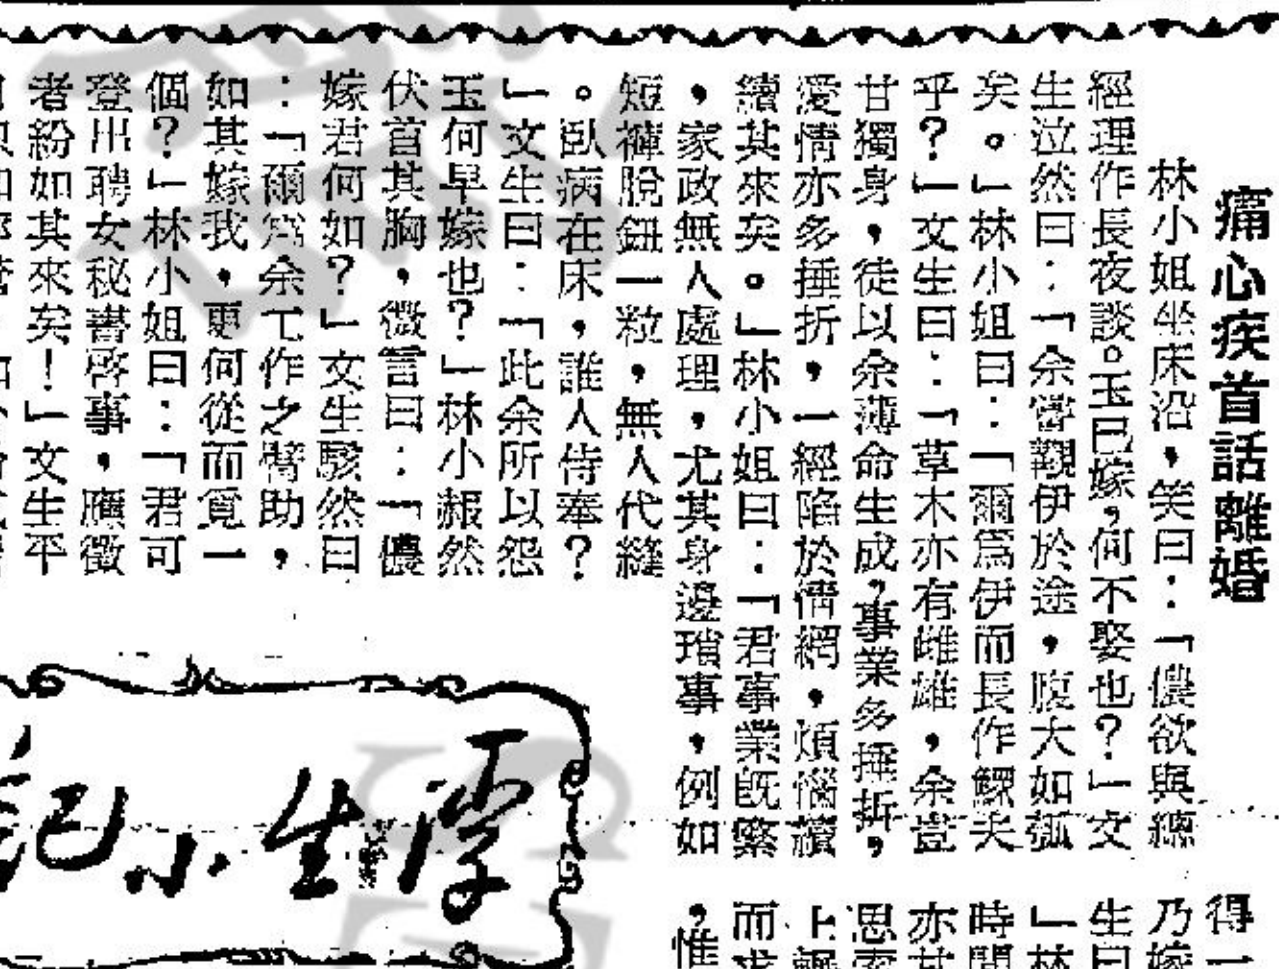 痛心疾首話離婚
林小姐坐床沿，笑曰：「儂欲與總
經理作長夜談。玉已嫁，何不娶也？」文
生泣然曰：「余嘗觀伊於途，腹大如瓠
矣。」林小姐曰：「爾爲伊而長作鰥夫
乎？」文生曰：「草木亦有雌雄，余豈
甘獨身，徒以余薄命生成，事業多捶折，
愛情亦多捶折，一經陷於情網，煩惱續
續其來矣。」林小姐曰：「君事業旣繁
，家政無人處理，尤其身邊瑣事，例如
短褲脫鈕一粒，無人代縫
。臥病在床，誰人侍奉？
」文生曰：「此余所以怨
玉何早嫁也？」林小赧然
伏首其胸，微言曰：「儂
嫁君何如？」文生駭然曰
：「爾爲余工作之臂助，
如其嫁我，更何從而覓一
個？」林小姐曰：「君可
登出聘女秘書啓事，應徵
者紛如其來矣！」文生平
浮生小記
得一
乃嫁
生曰
」林
時間
亦其
思索
上
而求
，惟